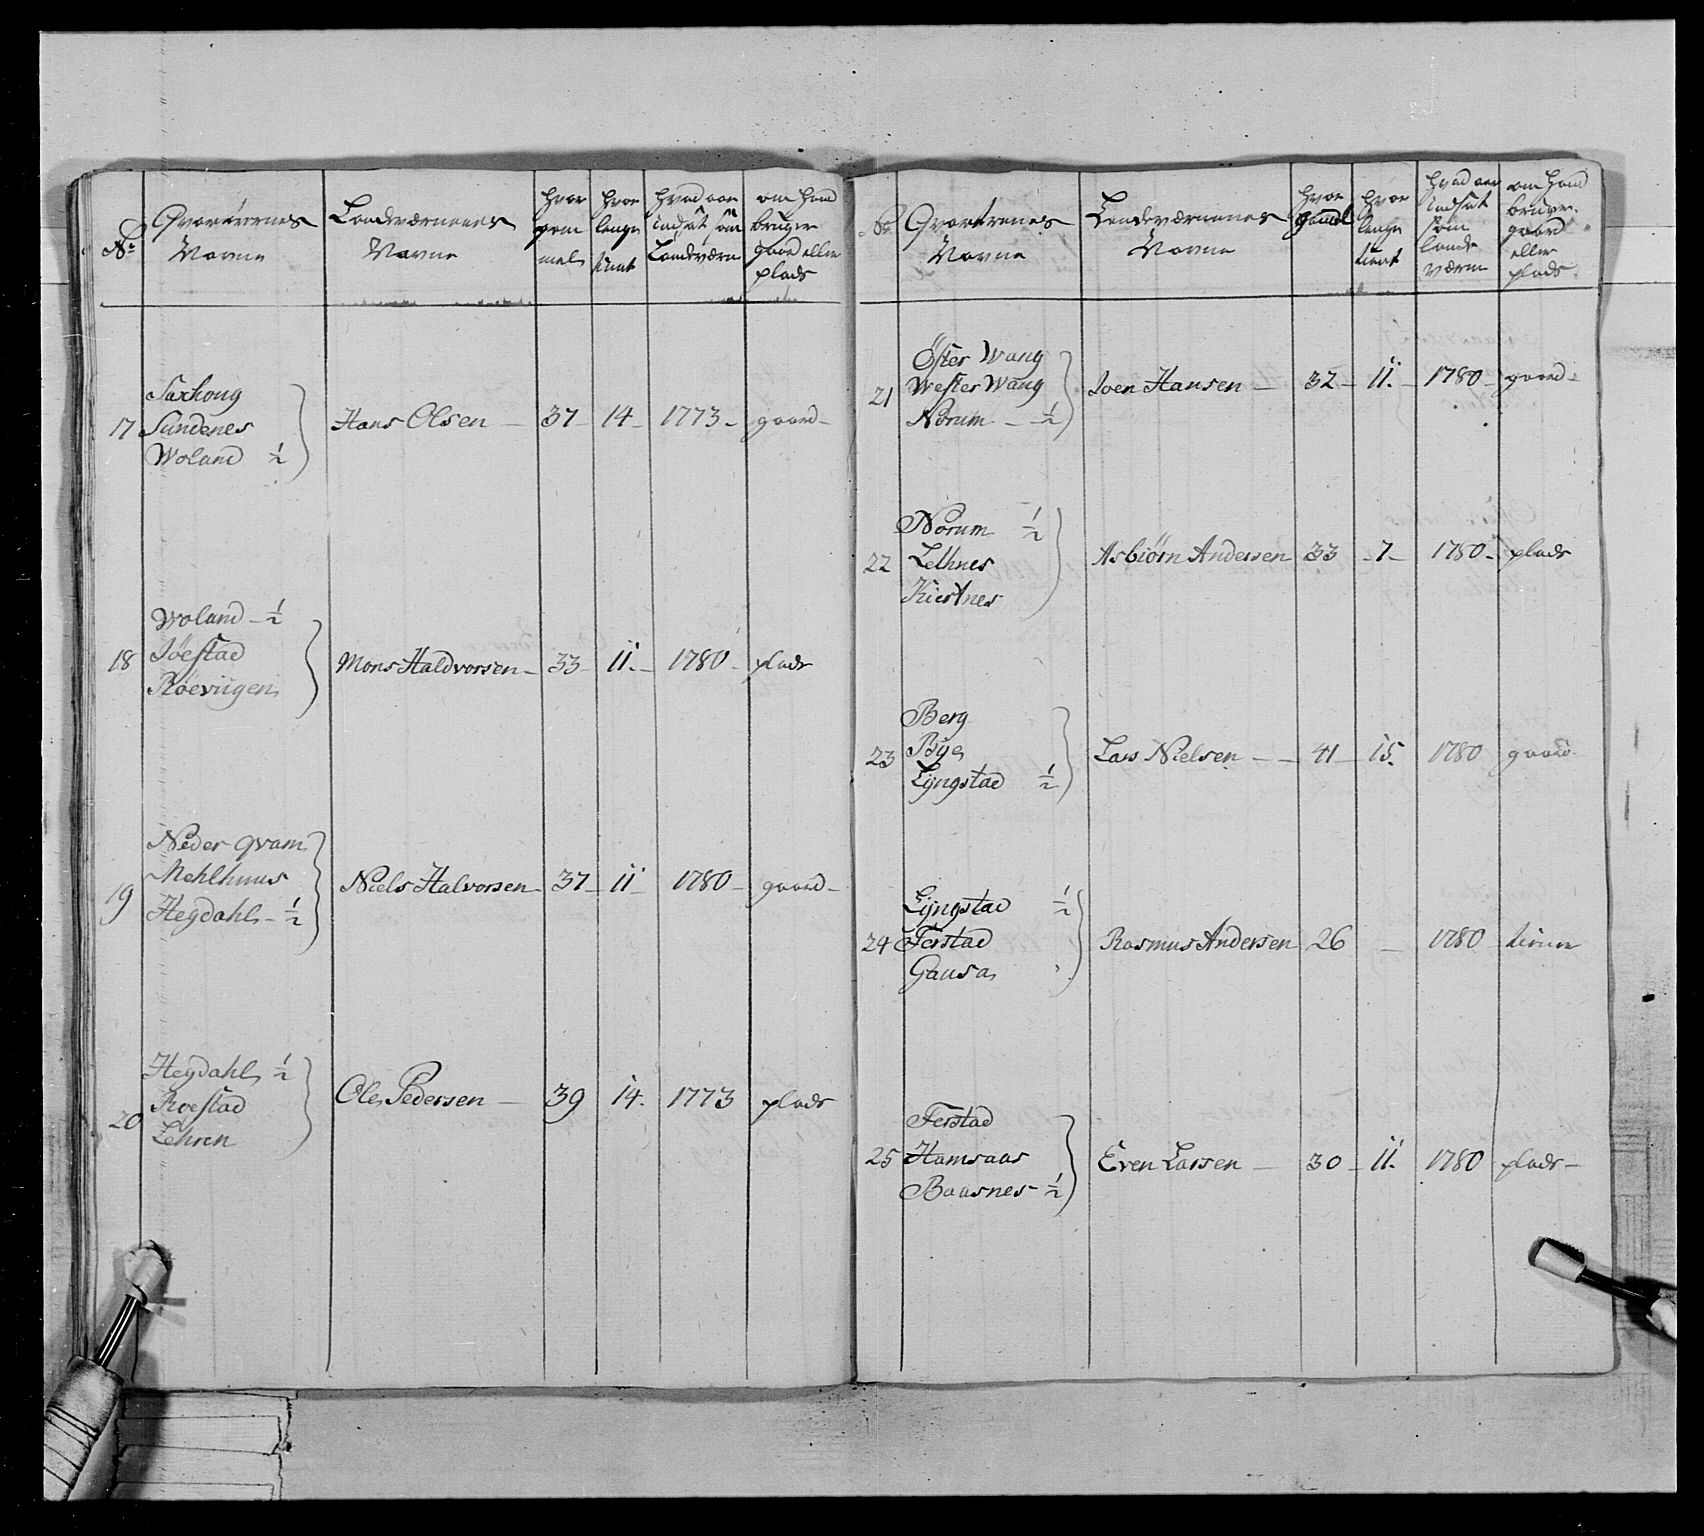 No
Qvarterernes
Navne
Landværnenes
Navne
hvor
gam
mel
hvor
lenge
tient
hvad aar
indsat som
Landværn
om hand
bruger
gaard eller
plads
17
Saxhoug
Sundenes
Woland ½
Hans Olsen — 37 — 14 — 1773 — gaard —
18
Woland — ½
Jöestad
Röeviigen
Mons Haldvorsen — 33 — 11 — 1780 — plads
19
Neder qvam
Mehlhuus
Hegdahl — ½
Niels Halvorsen — 37 — 11 — 1780 — gaard —
20
Hegdahl ½
Roestad
Lehren
Ole Pedersen — 39 14. 1773 plads
No
Qvarterenes
Navne
Landeværnenes
Navne
hvor
gaml
hvor
lenge
tient
hvad aar
indsat
som
lande
værn
om hand
bruger
gaard
eller
plads
21
Öster Wang
Wester Wang
Norum — ½
Joen Hansen — 32 — 11. — 1780 — gaard —
22
Norum ½
Lethnes
Kierknes
Asbiörn Andersen 33 — 7 — 1780 — plads
23
Berg
Bye
Lyngstad ½
Lars Nielsen — 41 — 15. 1780 gaard
24
Lyngstad ½
Ferstad
Gausa
Rasmus Andersen 26 — 1780 tiener
25
Ferstad
Hamsaas
Baasnes — ½
Even Larsen — 30 — 11. 1780 plads —